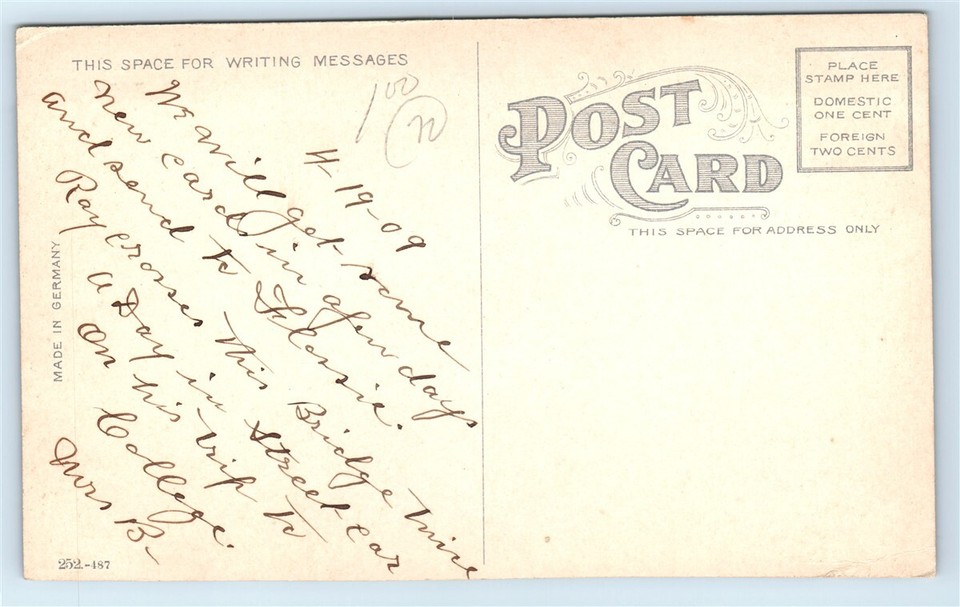 THIS SPACE FOR WRITING MESSAGES
100
n
4-19-09
We will get some
new cards in a few days
and send to Flossie.
Ray crosses this Bridge twice
a Day in Street car
On his trip to
College.
Mrs B-
MADE IN GERMANY
252.-487
POST CARD
THIS SPACE FOR ADDRESS ONLY
PLACE
STAMP HERE
DOMESTIC
ONE CENT
FOREIGN
TWO CENTS